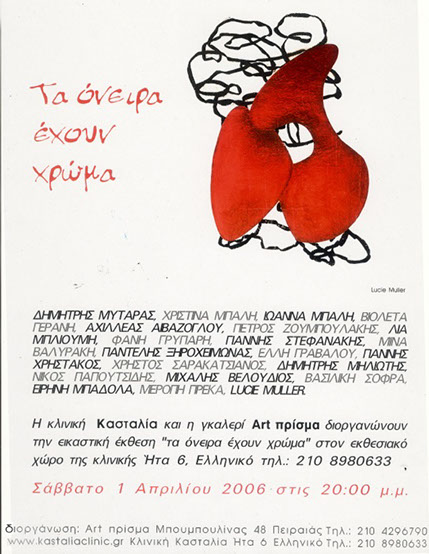 Τα όνειρα
έχουν
χρώμα
Lucie Muller
ΔΗΜΗΤΡΗΣ ΜΥΤΑΡΑΣ, ΧΡΙΣΤΙΝΑ ΜΠΑΛΗ, ΙΩΑΝΝΑ ΜΠΑΛΗ, ΒΙΟΛΕΤΑ
ΓΕΡΑΝΗ, ΑΧΙΛΛΕΑΣ ΑΙΒΑΖΟΓΛΟΥ, ΠΕΤΡΟΣ ΖΟΥΜΠΟΥΛΑΚΗΣ, ΛΙΑ
ΜΠΛΙΟΥΜΗ, ΦΑΝΗ ΓΡΥΠΑΡΗ, ΓΙΑΝΝΗΣ ΣΤΕΦΑΝΑΚΗΣ, ΜΙΝΑ
ΒΑΛΥΡΑΚΗ, ΠΑΝΤΕΛΗΣ ΞΗΡΟΧΕΙΜΩΝΑΣ, ΕΛΛΗ ΓΡΑΒΑΛΟΥ, ΓΙΑΝΝΗΣ
ΧΡΗΣΤΑΚΟΣ, ΧΡΗΣΤΟΣ ΣΑΡΑΚΑΤΣΙΑΝΟΣ, ΔΗΜΗΤΡΗΣ ΜΗΛΙΩΤΗΣ,
ΝΙΚΟΣ ΠΑΠΟΥΤΣΙΔΗΣ, ΜΙΧΑΛΗΣ ΒΕΛΟΥΔΙΟΣ, ΒΑΣΙΛΙΚΗ ΣΟΦΡΑ,
ΕΙΡΗΝΗ ΜΠΑΔΟΛΑ, ΜΕΡΟΠΗ ΠΡΕΚΑ, LUCIE MULLER.
Η κλινική Κασταλία και η γκαλερί Art πρίσμα διοργανώνουν
την εικαστική έκθεση "τα όνειρα έχουν χρώμα" στον εκθεσιακό
χώρο της κλινικής Ήτα 6, Ελληνικό τηλ.: 210 8980633
Σάββατο 1 Απριλίου 2006 στις 20:00 μ.μ.
διοργάνωση: Art πρίσμα Μπουμπουλίνας 48 Πειραιάς Τηλ.: 210 4296790
www.kastaliaclinic.gr Κλινική Κασταλία Ήτα 6 Ελληνικό Τηλ.: 210 8980633